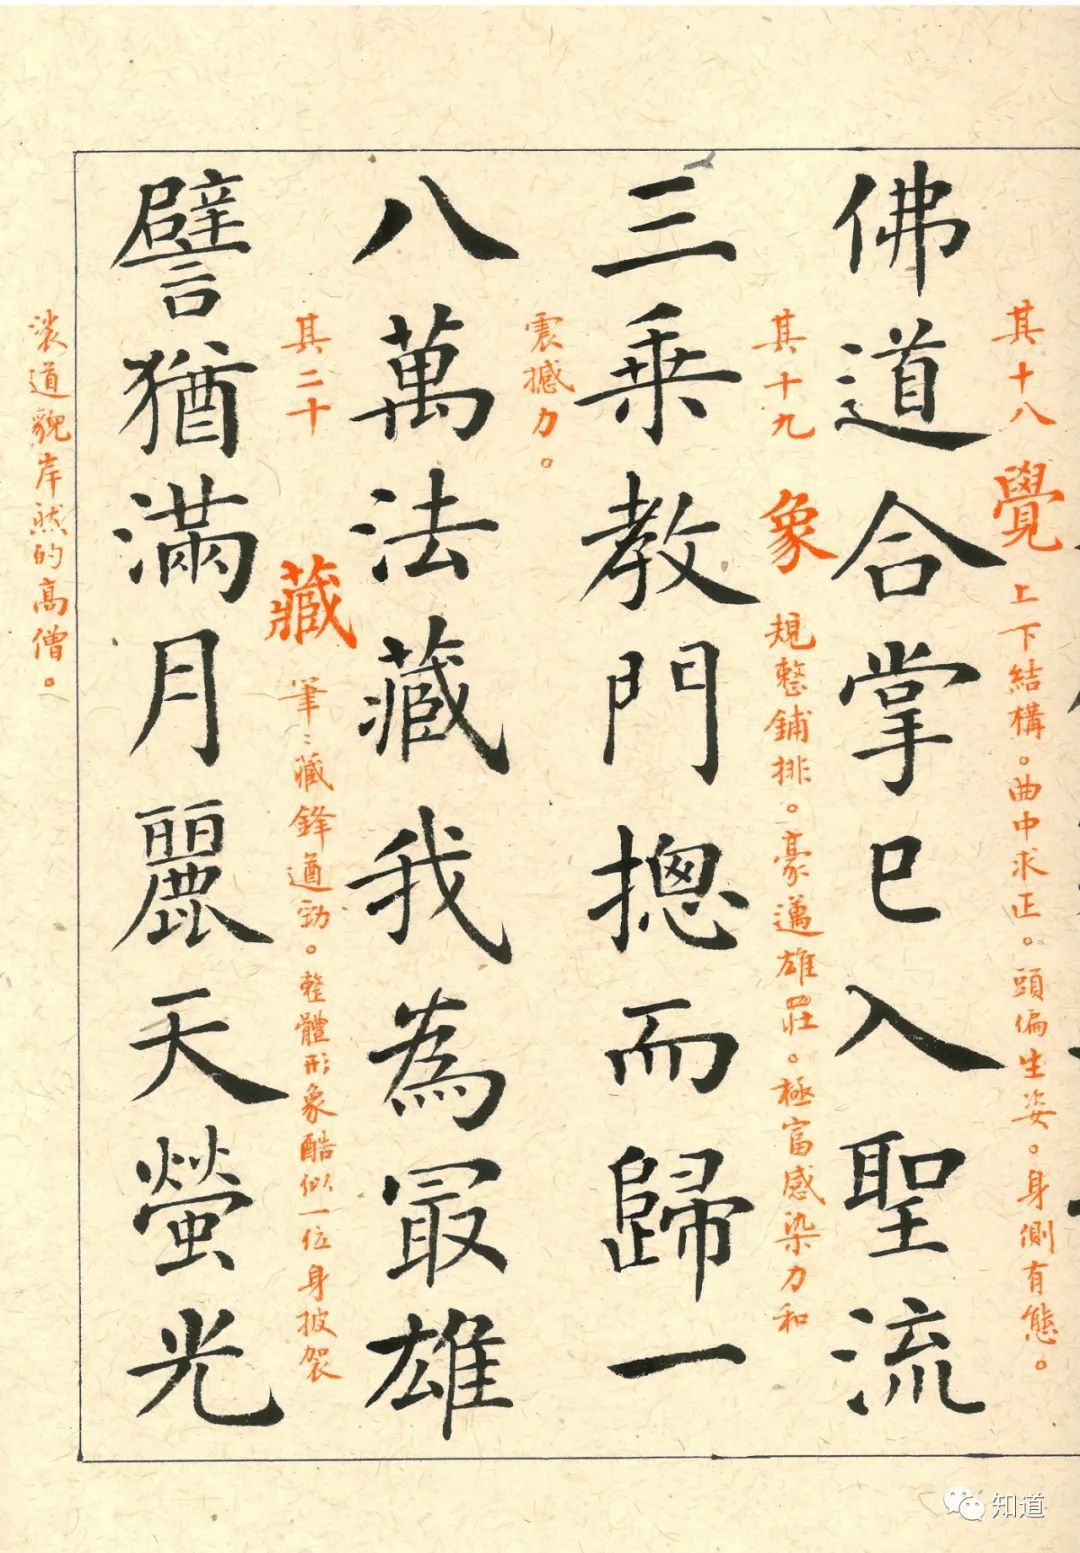 其十八 覺 上下結構。曲中求正。頭偏生姿。身側有態。
佛道合掌已入聖流
其十九 象 規整鋪排。豪邁雄莊。極富感染力和
三乘教門摠而歸一
震撼力。
八萬法藏我為冣雄
其二十 藏 筆〻藏鋒遒勁。整體形象酷似一位身披袈
譬猶滿月麗天螢光
裟道貌岸然的高僧。
知道